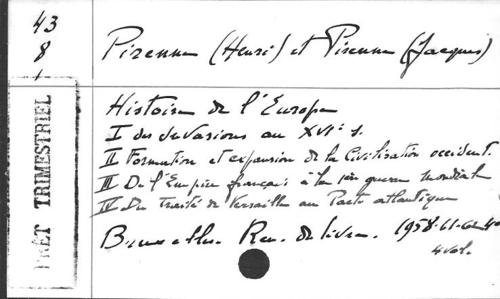 43
8
PRÊT TRIMESTRIEL
Pirenne (Henri) et Pirenne (Jacques)
Histoire de l'Europe
I des invasions au XVIe s.
II Formation et expansion de la Civilisation occident.
III De l'Empire français à la 1ère guerre mondiale
IV Du Traité de Versailles au Pacte atlantique
Bruxelles. Ren. du livre. 1958-61-62
4 vol.